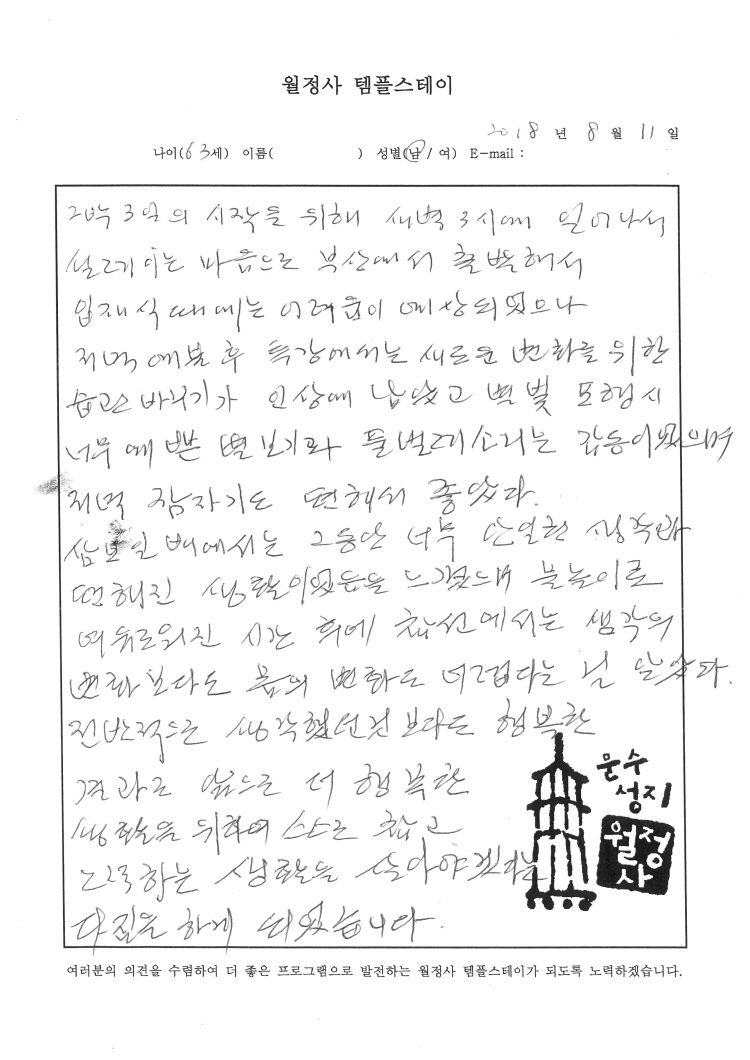 월정사 템플스테이
2018 년 8 월 11 일
나이(63세) 이름( ) 성별(남 / 여) E-mail :
2박 3일의 시작을 위해 새벽 3시에 일어나서
설레이는 마음으로 부산에서 출발해서
입재식 때에는 어려움이 예상되었으나
저녁 예불 후 특강에서는 새로운 변화를 위한
습관 바꾸기가 인상에 남았고 별빛 포행시
너무 예쁜 별보기와 풀벌레소리는 감동이었으며
저녁 잠자기도 편해서 좋았다.
삼보일배에서는 그동안 너무 안일한 생각과
편해진 생활이었음을 느꼈으며 물놀이로
여유로워진 시간 후에 참선에서는 생각의
변화보다도 몸의 변화도 어렵다는 걸 알았다.
전반적으로 생각했던것 보다도 행복한
결과로 앞으로 더 행복한
생활을 위하여 스스로 참고
노력하는 생활을 살아야겠다는
다짐을 하게 되었습니다.
문수
성지
월정
사
여러분의 의견을 수렴하여 더 좋은 프로그램으로 발전하는 월정사 템플스테이가 되도록 노력하겠습니다.